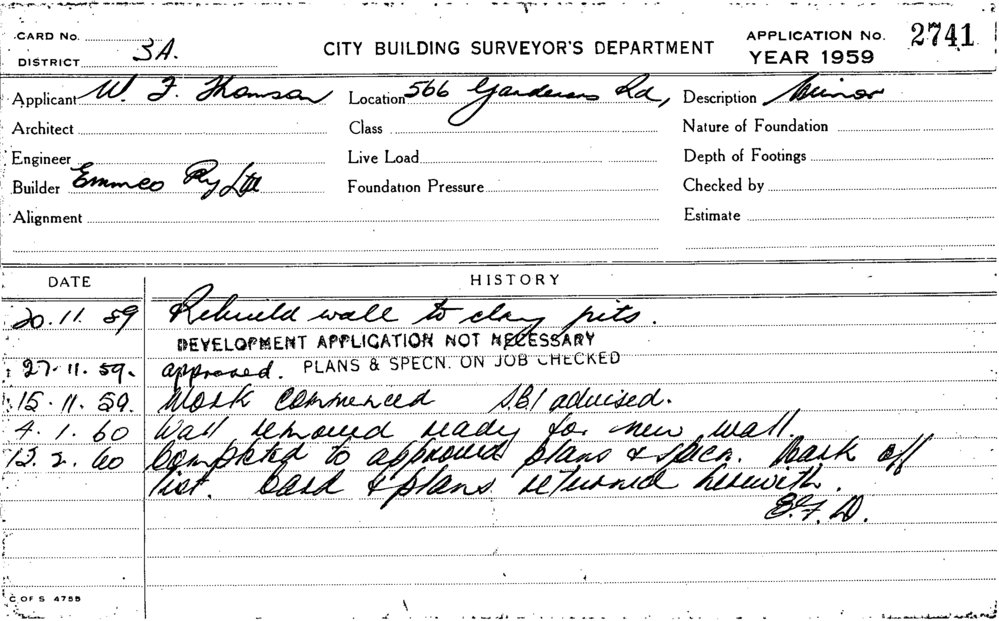 CARD No.
DISTRICT 3A.
CITY BUILDING SURVEYOR'S DEPARTMENT
APPLICATION No. 2741
YEAR 1959
Applicant W. F. Thomson Location 566 Gardeners Rd, Description Minor
Architect Class Nature of Foundation
Engineer Live Load Depth of Footings
Builder Emmco Pty Ltd Foundation Pressure Checked by
Alignment Estimate
DATE HISTORY
20.11.59 Rebuild wall to clay pits.
DEVELOPMENT APPLICATION NOT NECESSARY
27.11.59. approved. PLANS & SPECN. ON JOB CHECKED
15.11.59. Work commenced S.B.I advised.
4.1.60 Wall removed ready for new wall.
12.2.60 Completed to approved plans & specn. Mark off
list. Card & plans returned herewith.
E.F.D.
C OF S 4755